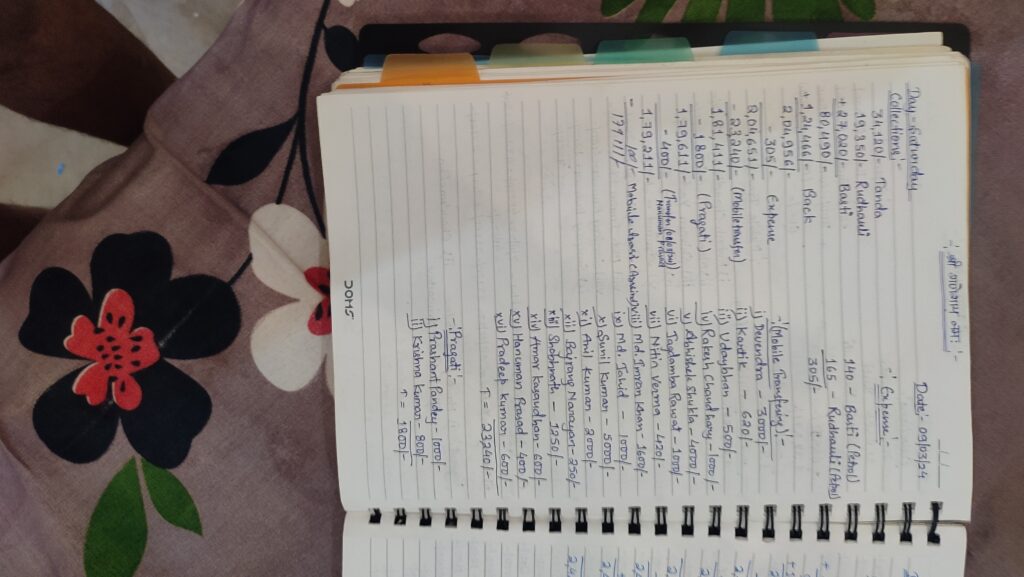 -: श्री गणेशाय नमः :-
Day - Saturday
Date:- 09/03/24
Collections:-
34,120/- Tanda
19,350/- Rudhauli
+ 27,020/- Basti
80,490/-
+ 1,24,466/- Back
2,04,956/-
- 305/- Expense
2,04,651/-
- 23240/- (Mobile transfer)
1,81,411/-
- 1800/- (Pragati)
1,79,611/-
- 400/-
1,79,211/-
- 100/-
179111/-
-: Expense :-
140 - Basti (Petrol)
165 - Rudhauli (Petrol)
305/-
-: (Mobile Transfering) :-
i) Devendra - 3000/-
ii) Kartik - 620/-
iii) Udaybhan - 500/-
iv) Rakesh Chaudhary - 1000/-
v) Abhishek Shukla - 4000/-
vi) Jagdamba Rawat - 1000/-
vii) Nitin Verma - 420/-
viii) Md. Imran Khan - 1600/-
ix) Md. Jahid - 1000/-
x) Sunil Kumar - 5000/-
xi) Anil Kumar - 2000/-
xii) Bajrang Narayan - 250/-
xiii) Shobhnath - 1250/-
xiv) Amar Kasaudhan - 600/-
xv) Hanuman Prasad - 400/-
xvi) Pradeep Kumar - 600/-
T = 23240/-
-: Pragati :-
i) Prashant Pandey - 1000/-
ii) Krishna Kumar - 800/-
T = 1800/-